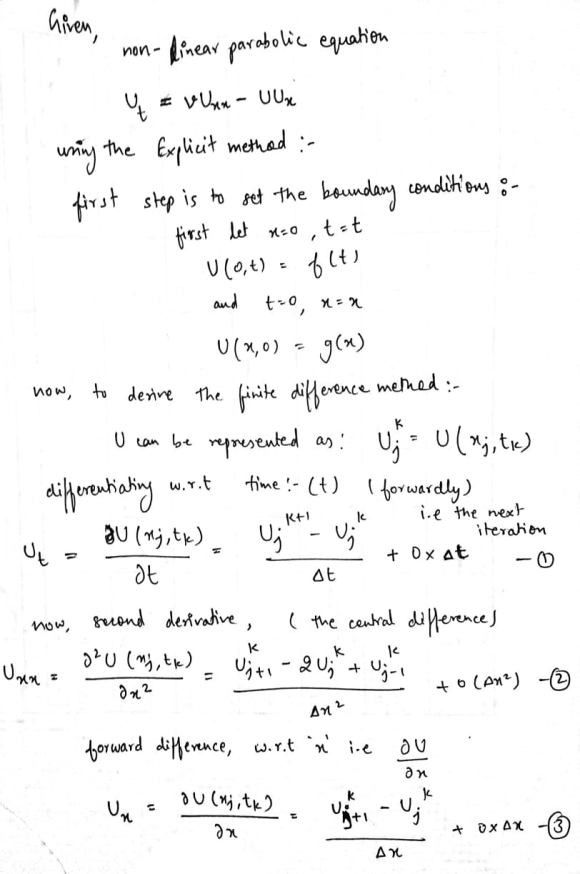 Given,
non-linear parabolic equation
U_t = νU_xx - UU_x
using the Explicit method :-
first step is to set the boundary conditions :-
first let x=0, t=t
U(0,t) = f(t)
and t=0, x=x
U(x,0) = g(x)
now, to derive the finite difference method :-
U can be represented as: U_j^k = U(x_j,t_k)
differentiating w.r.t time :- (t) (forwardly)
i.e the next iteration
U_t = ∂U(x_j,t_k)/∂t = (U_j^{k+1} - U_j^k)/Δt + 0 x Δt - ①
now, second derivative, (the central difference)
U_xx = ∂²U(x_j,t_k)/∂x² = (U_{j+1}^k - 2U_j^k + U_{j-1}^k)/Δx² + 0(Δx²) - ②
forward difference, w.r.t 'x' i.e ∂U/∂x
U_x = ∂U(x_j,t_k)/∂x = (U_{j+1}^k - U_j^k)/Δx + 0 x Δx - ③